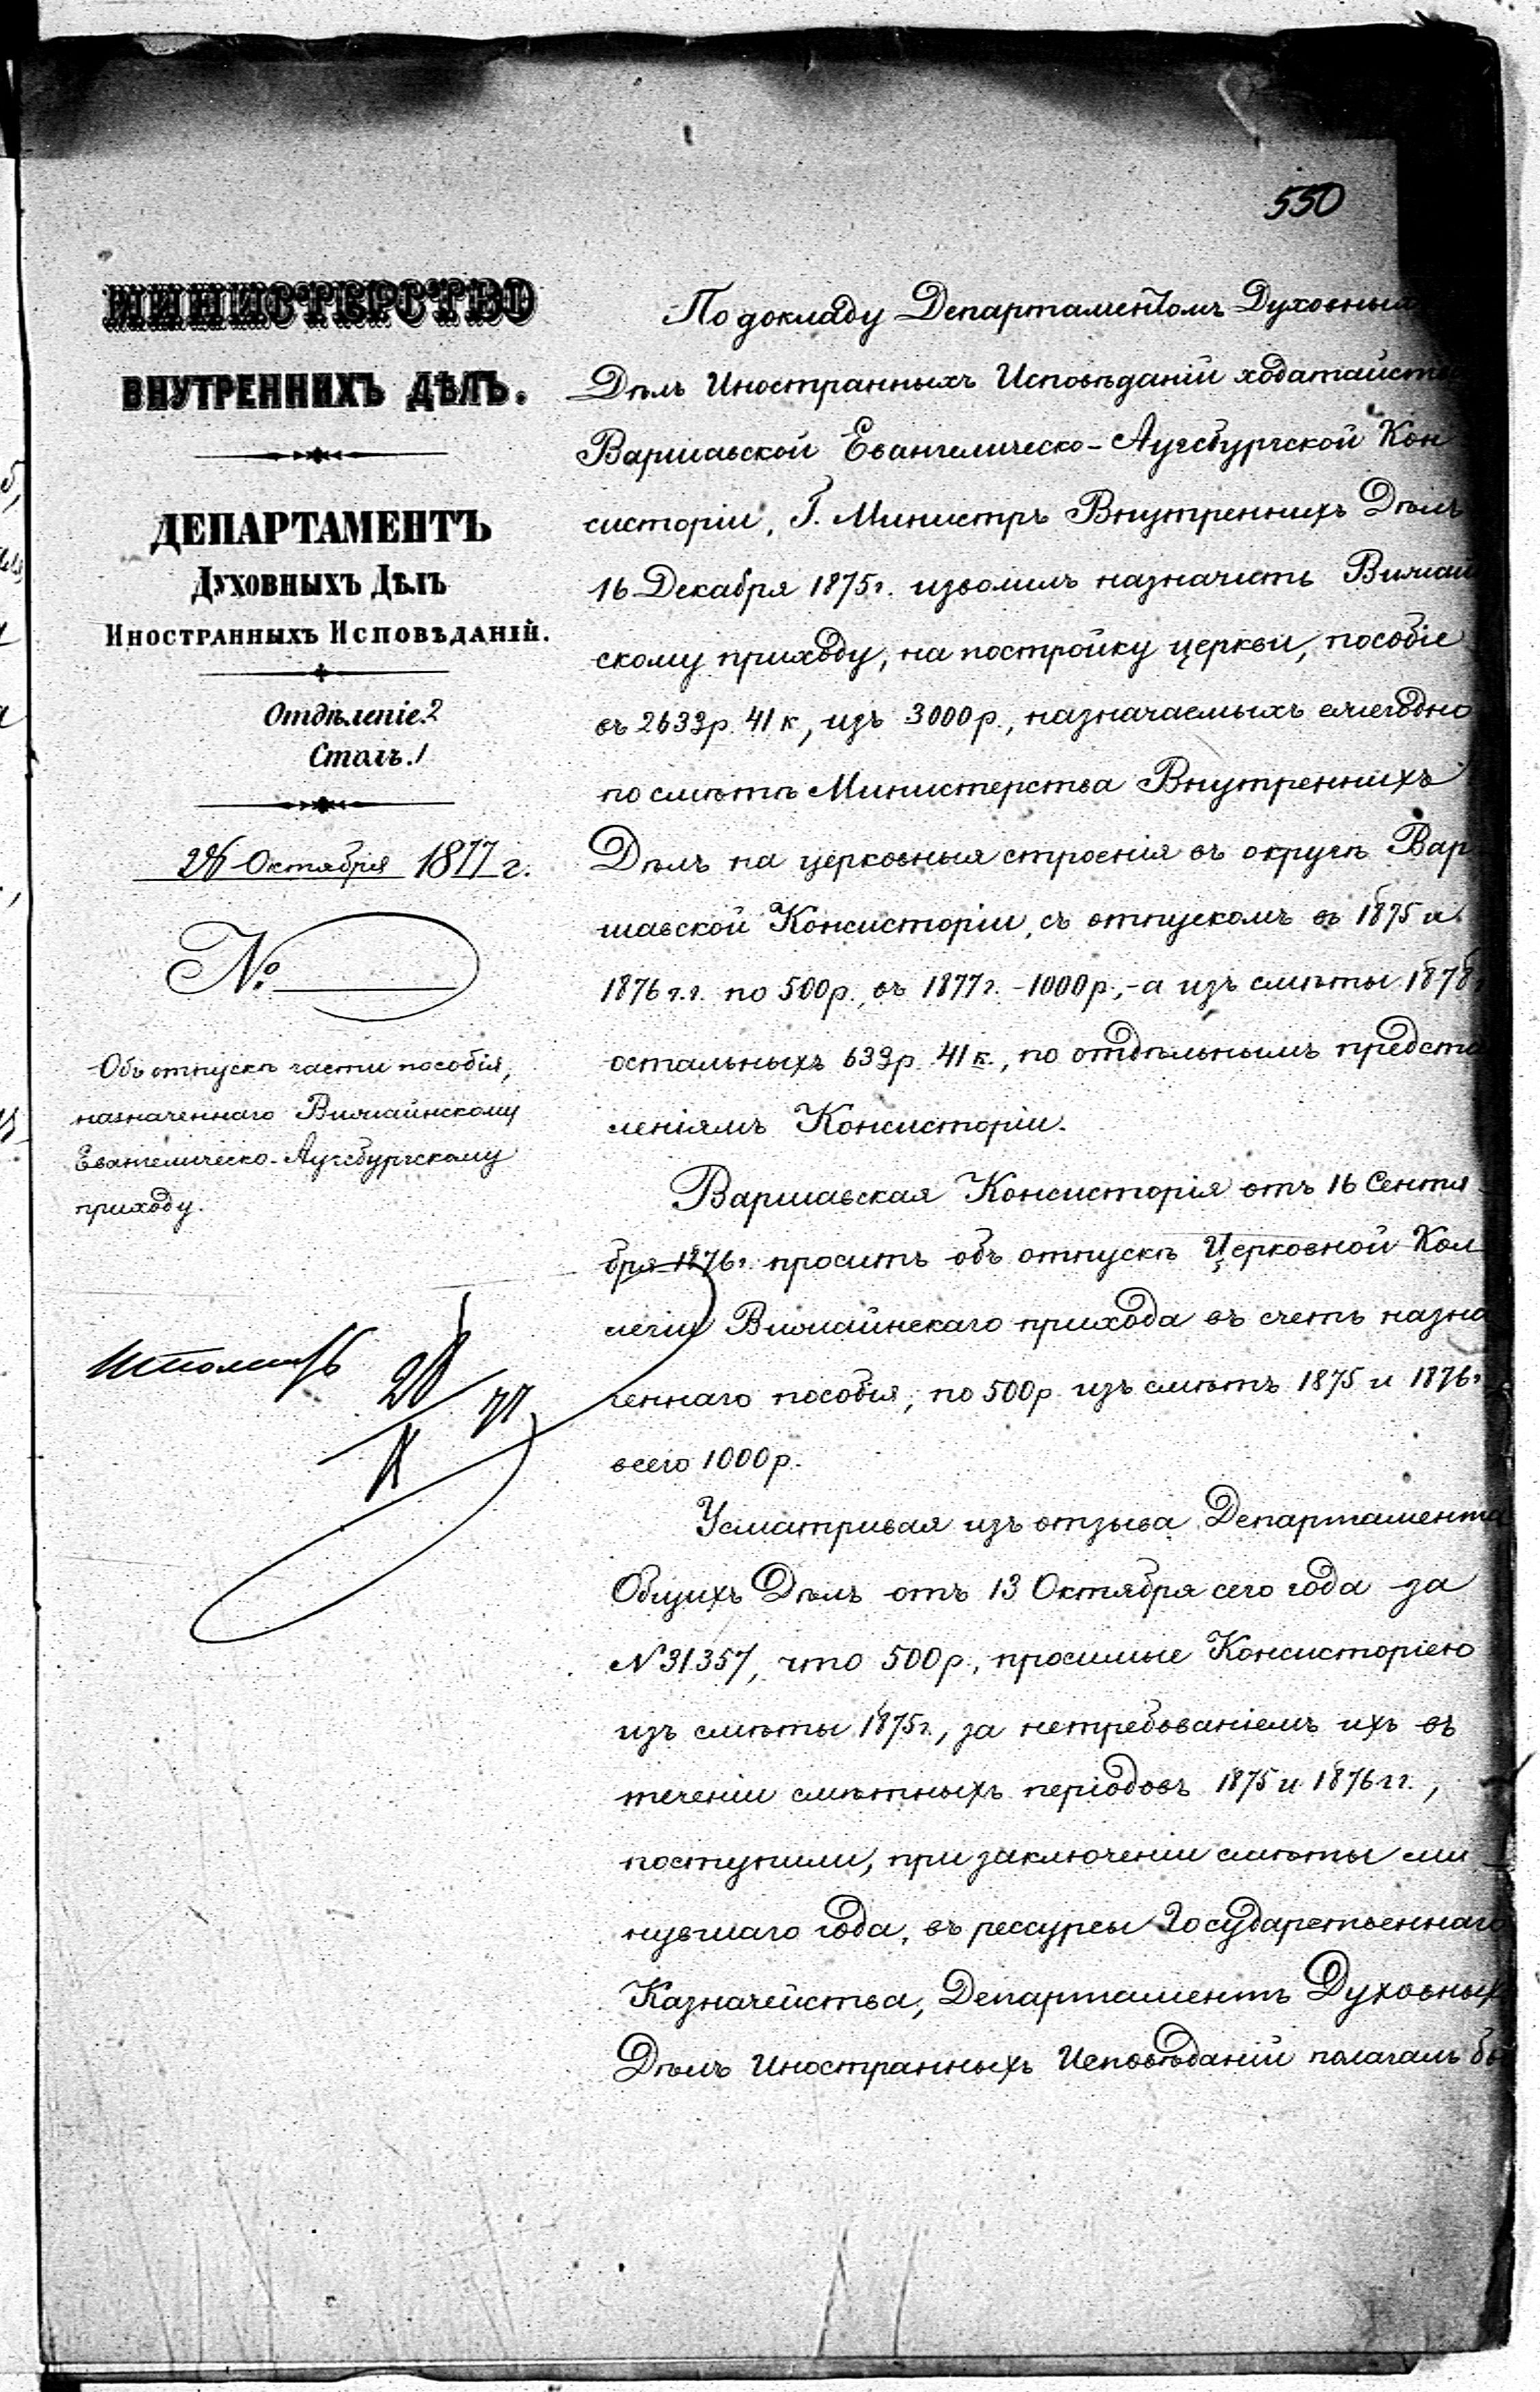 550
МИНИСТЕРСТВО
ВНУТРЕННИХЪ ДѢЛЪ.
ДЕПАРТАМЕНТЪ
ДУХОВНЫХЪ ДѢЛЪ
ИНОСТРАННЫХЪ ИСПОВѢДАНІЙ.
Отдѣленіе.2
Столъ.1
26 Октября 1877 г.
№
Объ отпускѣ части пособія,
назначеннаго Вижайнскому
Евангелическо-Аугсбургскому
приходу.
По докладу Департаментомъ Духовных
Дѣлъ Иностранныхъ Исповѣданій ходатайств
Варшавской Евангелическо-Аугсбургской Кон
систоріи, Г. Министръ Внутреннихъ Дѣлъ
16 Декабря 1875г. изволилъ назначить Вижай
скому приходу, на постройку церкви, пособіе
въ 2633р. 41к, изъ 3000р., назначаемыхъ ежегодно
по смѣтѣ Министерства Внутреннихъ
Дѣлъ на церковныя строенія въ округѣ Вар
шавской Консисторіи, съ отпускомъ въ 1875 и
1876 г.г. по 500р., въ 1877г. -1000р,-а изъ смѣты 1878
остальныхъ 633р. 41к., по отдѣльнымъ предста
леніямъ Консисторіи.
Варшавская Консисторія отъ 16 Сентя
бря 1876г. проситъ объ отпускѣ Церковной Кол
легіи Вижайнскаго прихода въ счетъ назна
ченнаго пособія, по 500р изъ смѣтъ 1875 и 1876г
всего 1000р.
Усматривая изъ отзыва Департамента
Общихъ Дѣлъ отъ 13 Октября сего года за
N 31357, что 500р., просимые Консисторіею
изъ смѣты 1875г., за нетребованіемъ ихъ въ
теченіи смѣтныхъ періодовъ 1875 и 1876 гг.,
поступили, при заключеніи смѣты ми
нувшаго года, въ рессурсы Государственнаго
Казначейства, Департаментъ Духовных
Дѣлъ Иностранныхъ Исповѣданій полагалъ бы